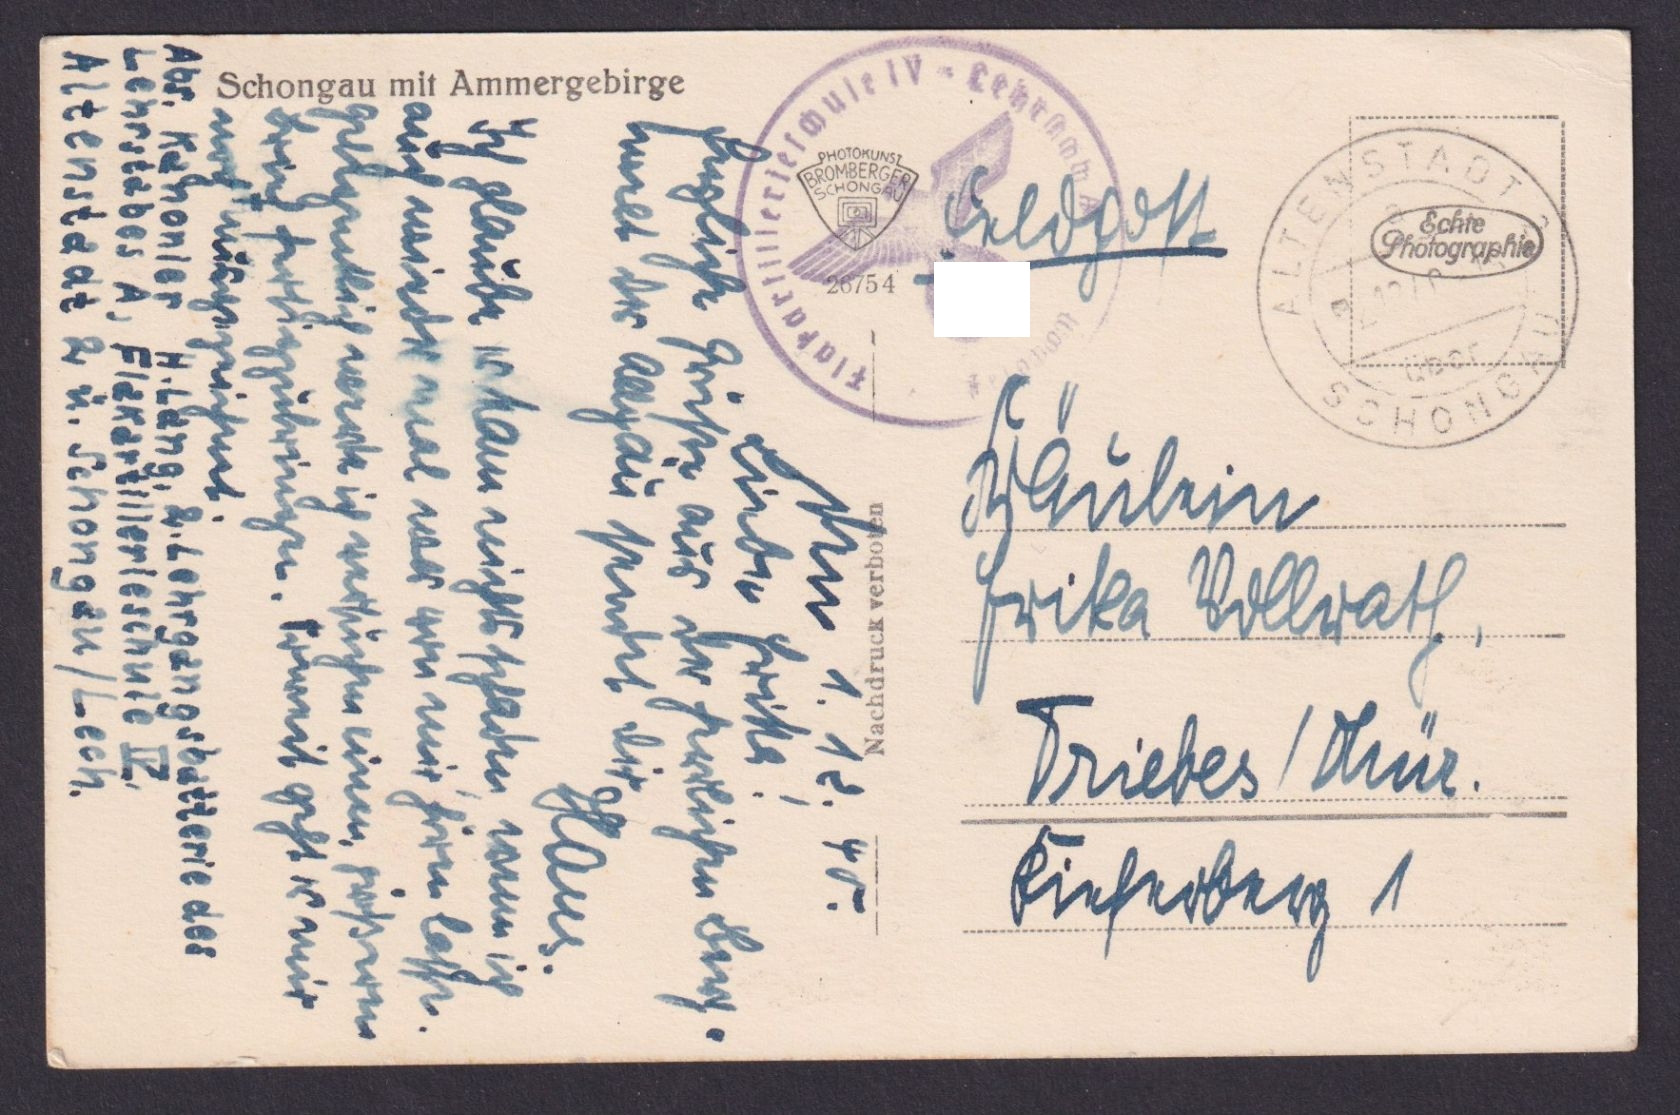 Schongau mit Ammergebirge
Abs. Kanonier H. Lang, 2. Lehrgangsbatterie des
Lehrstabes A, Flakartillerieschule IV.
Altenstadt 2 ü. Schongau/Lech.
Flakartillerieschule IV - Lehrstab A
PHOTOKUNST
BROMBERGER
SCHONGAU
26754
Nachdruck verboten
Feldpost
ALTENSTADT 2
über
SCHONGAU
Echte
Photographie
Fräulein
Erika Vollrath,
Triebes / Thür.
Kieferberg 1
1.12.40.
Liebe Erika!
Grüße aus der herrlichen Berg-
und der Allgäu sendet Dir
Hans.
Ich glaube es kann nichts schaden wenn ich
auch wieder mal was von mir hören lasse.
Gelegentlich werde ich versuchen einen größeren
Brief fertigzubringen. Soweit geht es mir
noch ausgezeichnet.